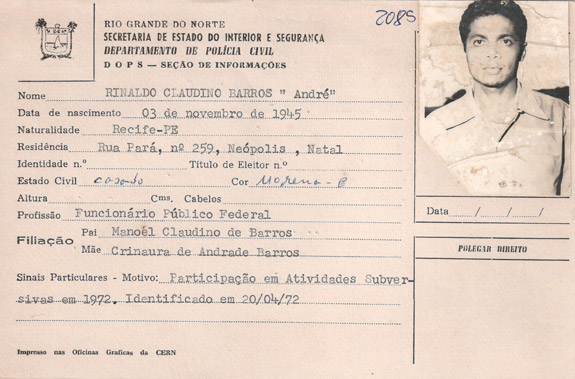 2085
RIO GRANDE DO NORTE
SECRETARIA DE ESTADO DO INTERIOR E SEGURANÇA
DEPARTAMENTO DE POLÍCIA CIVIL
D O P S — SEÇÃO DE INFORMAÇÕES
Nome RINALDO CLAUDINO BARROS " André"
Data de nascimento 03 de novembro de 1945
Naturalidade Recife-PE
Residência Rua Pará, nº 259, Neópolis , Natal
Identidade n.º Título de Eleitor n.º
Estado Civil casado Cor Morena - B
Altura Cms. Cabelos
Profissão Funcionário Público Federal
Filiação Pai Manoël Claudino de Barros
Mãe Crinaura de Andrade Barros
Sinais Particulares - Motivo: Participação em Atividades Subver-
sivas em 1972. Identificado em 20/04/72
Impresso nas Oficinas Graficas da CERN
Data / / /
POLEGAR DIREITO